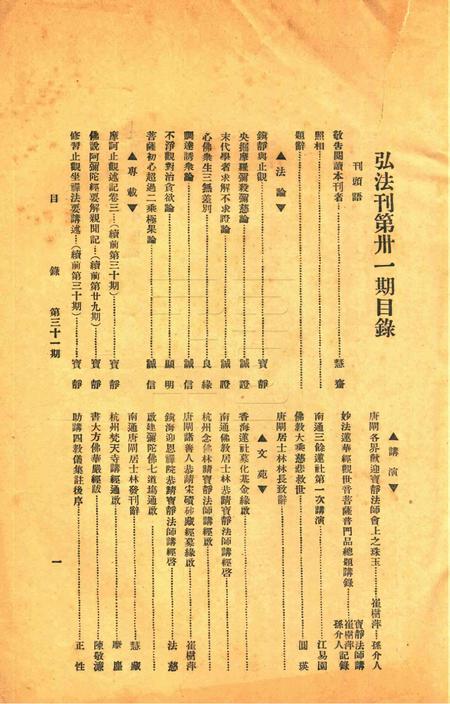 弘法刊第卅一期目錄
刊頭語
敬告閱讀本刊者……慧齋
照相
題辭
▲法論▼
鎮靜與止觀……寶靜
央掘摩羅彌殺彌慈論……誠證
末代學者求解不求證論……誠證
心佛衆生三無差別……良緣
調達誘衆論……誠信
不淨觀對治貪欲論……顯明
菩薩初心超過二乘極果論……誠信
▲專載▼
摩訶止觀述記卷三……(續前第三十期)……寶靜
佛說阿彌陀經要解親聞記……(續前第廿九期)……寶靜
修習止觀坐禪法要講述……(續前第三十期)……寶靜
▲講演▼
唐閘各界歡迎寶靜法師會上之珠玉……崔樹萍 孫介人
妙法蓮華經觀世音菩薩普門品總題講錄……寶靜法師講 崔樹萍 孫介人記錄
南通三餘蓮社第一次講演……江易園
佛教大乘慈悲救世……圓瑛
唐閘居士林林長致辭
▲文苑▼
香海蓮社募化基金緣啟
南通佛教居士林恭請寶靜法師講經啓
杭州念佛林請寶靜法師講經啟
唐閘諸善人恭請宋磧砂藏經募緣啟……崔樹萍
鎮海迎恩禪院恭請寶靜法師講經啓……法慈
啟建彌陀佛七道場通啟
南通唐閘居士林發刊辭……慧嚴
杭州梵天寺講經通啟……摩塵
書大方佛華嚴經跋……陳敬濂
助講四教儀集註後序……正性
目錄 第三十一期 一